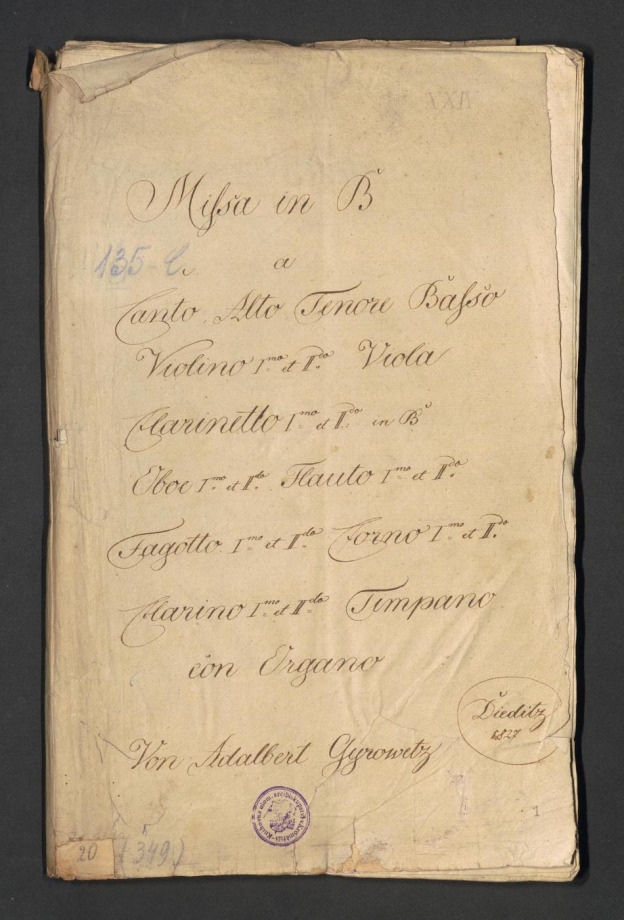 Missa in B
135 C.
a
Canto Alto Tenore Basso
Violino Imo et IIdo Viola
Clarinetto Imo et IIdo in B
Oboe Imo et IIdo Flauto Imo et IIdo
Fagotto Imo et IIdo Corno Imo et IIdo
Clarino Imo et IIdo Timpano
con Organo
Dieditz
1827
Von Adalbert Gyrowetz
1
20
(349.)